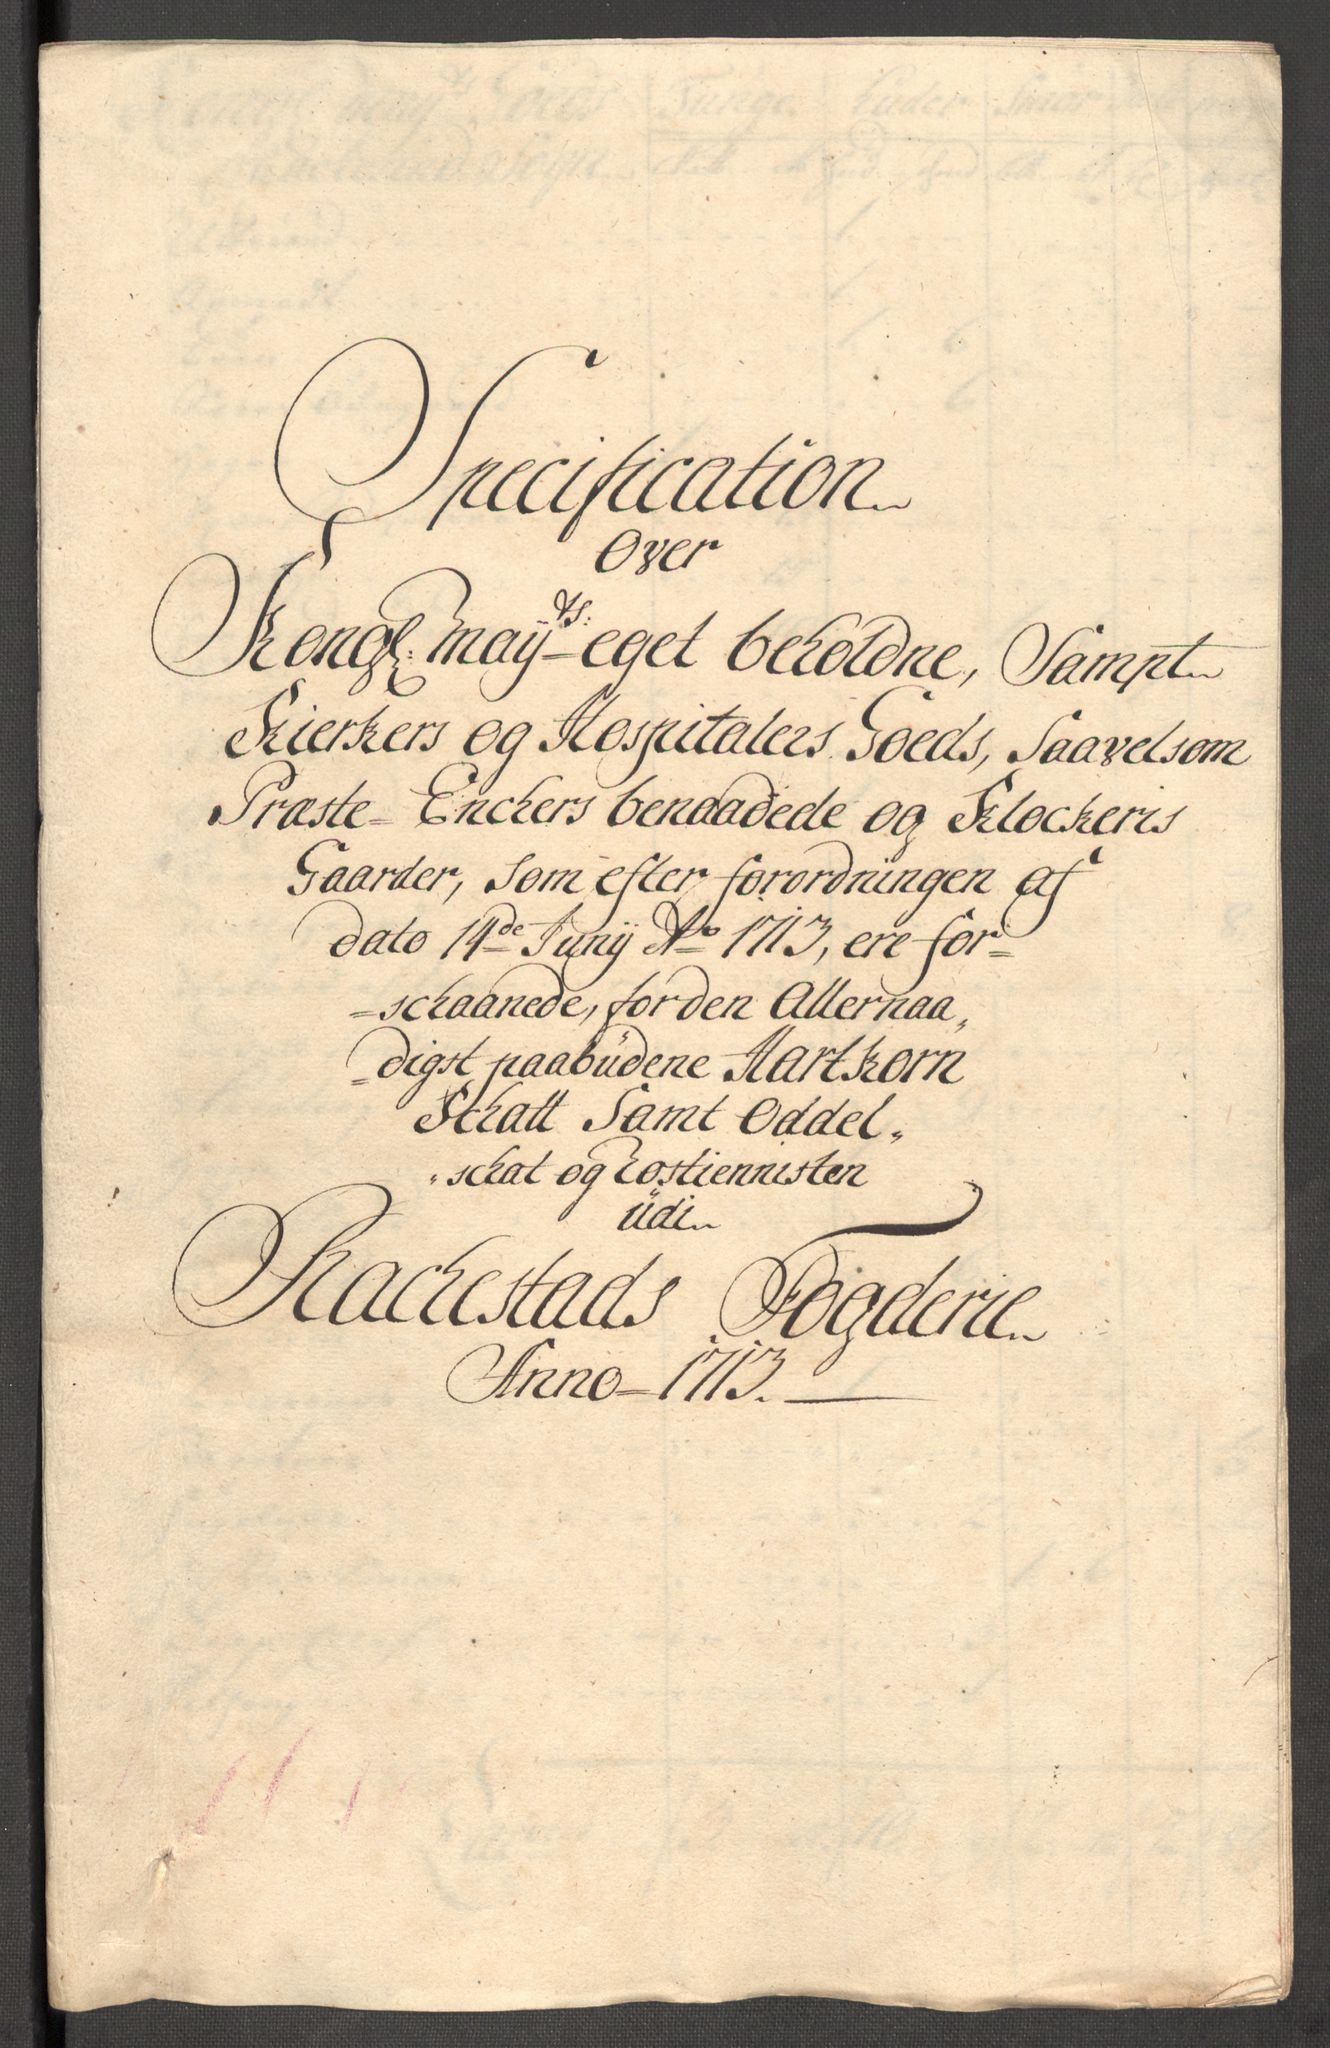 Specification
Over
Kongl: Maÿts: eget beholdne, Sampt
Kierkers og Hospitalers Goeds, Saavelsom
Præste-Enckers benaadede og Klockeris
Gaarder, som efter forordningen af
dato 14de Junÿ Ao 1713, ere for=
=schaanede, for den Allernaa„
=digst paabüdene Hartkorn
Schatt Samt Oddel„
„schat og Rostiennisten
üdi
Rackestads Fogderie
Anno 1713.